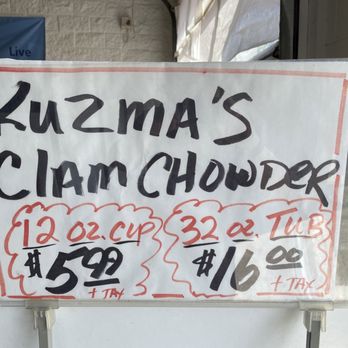 Live
KUZMA'S
Clam CHOWDER
12 oz. CUP
$5.99
+ TAX
32 oz. TUB
$16.00
+ TAX